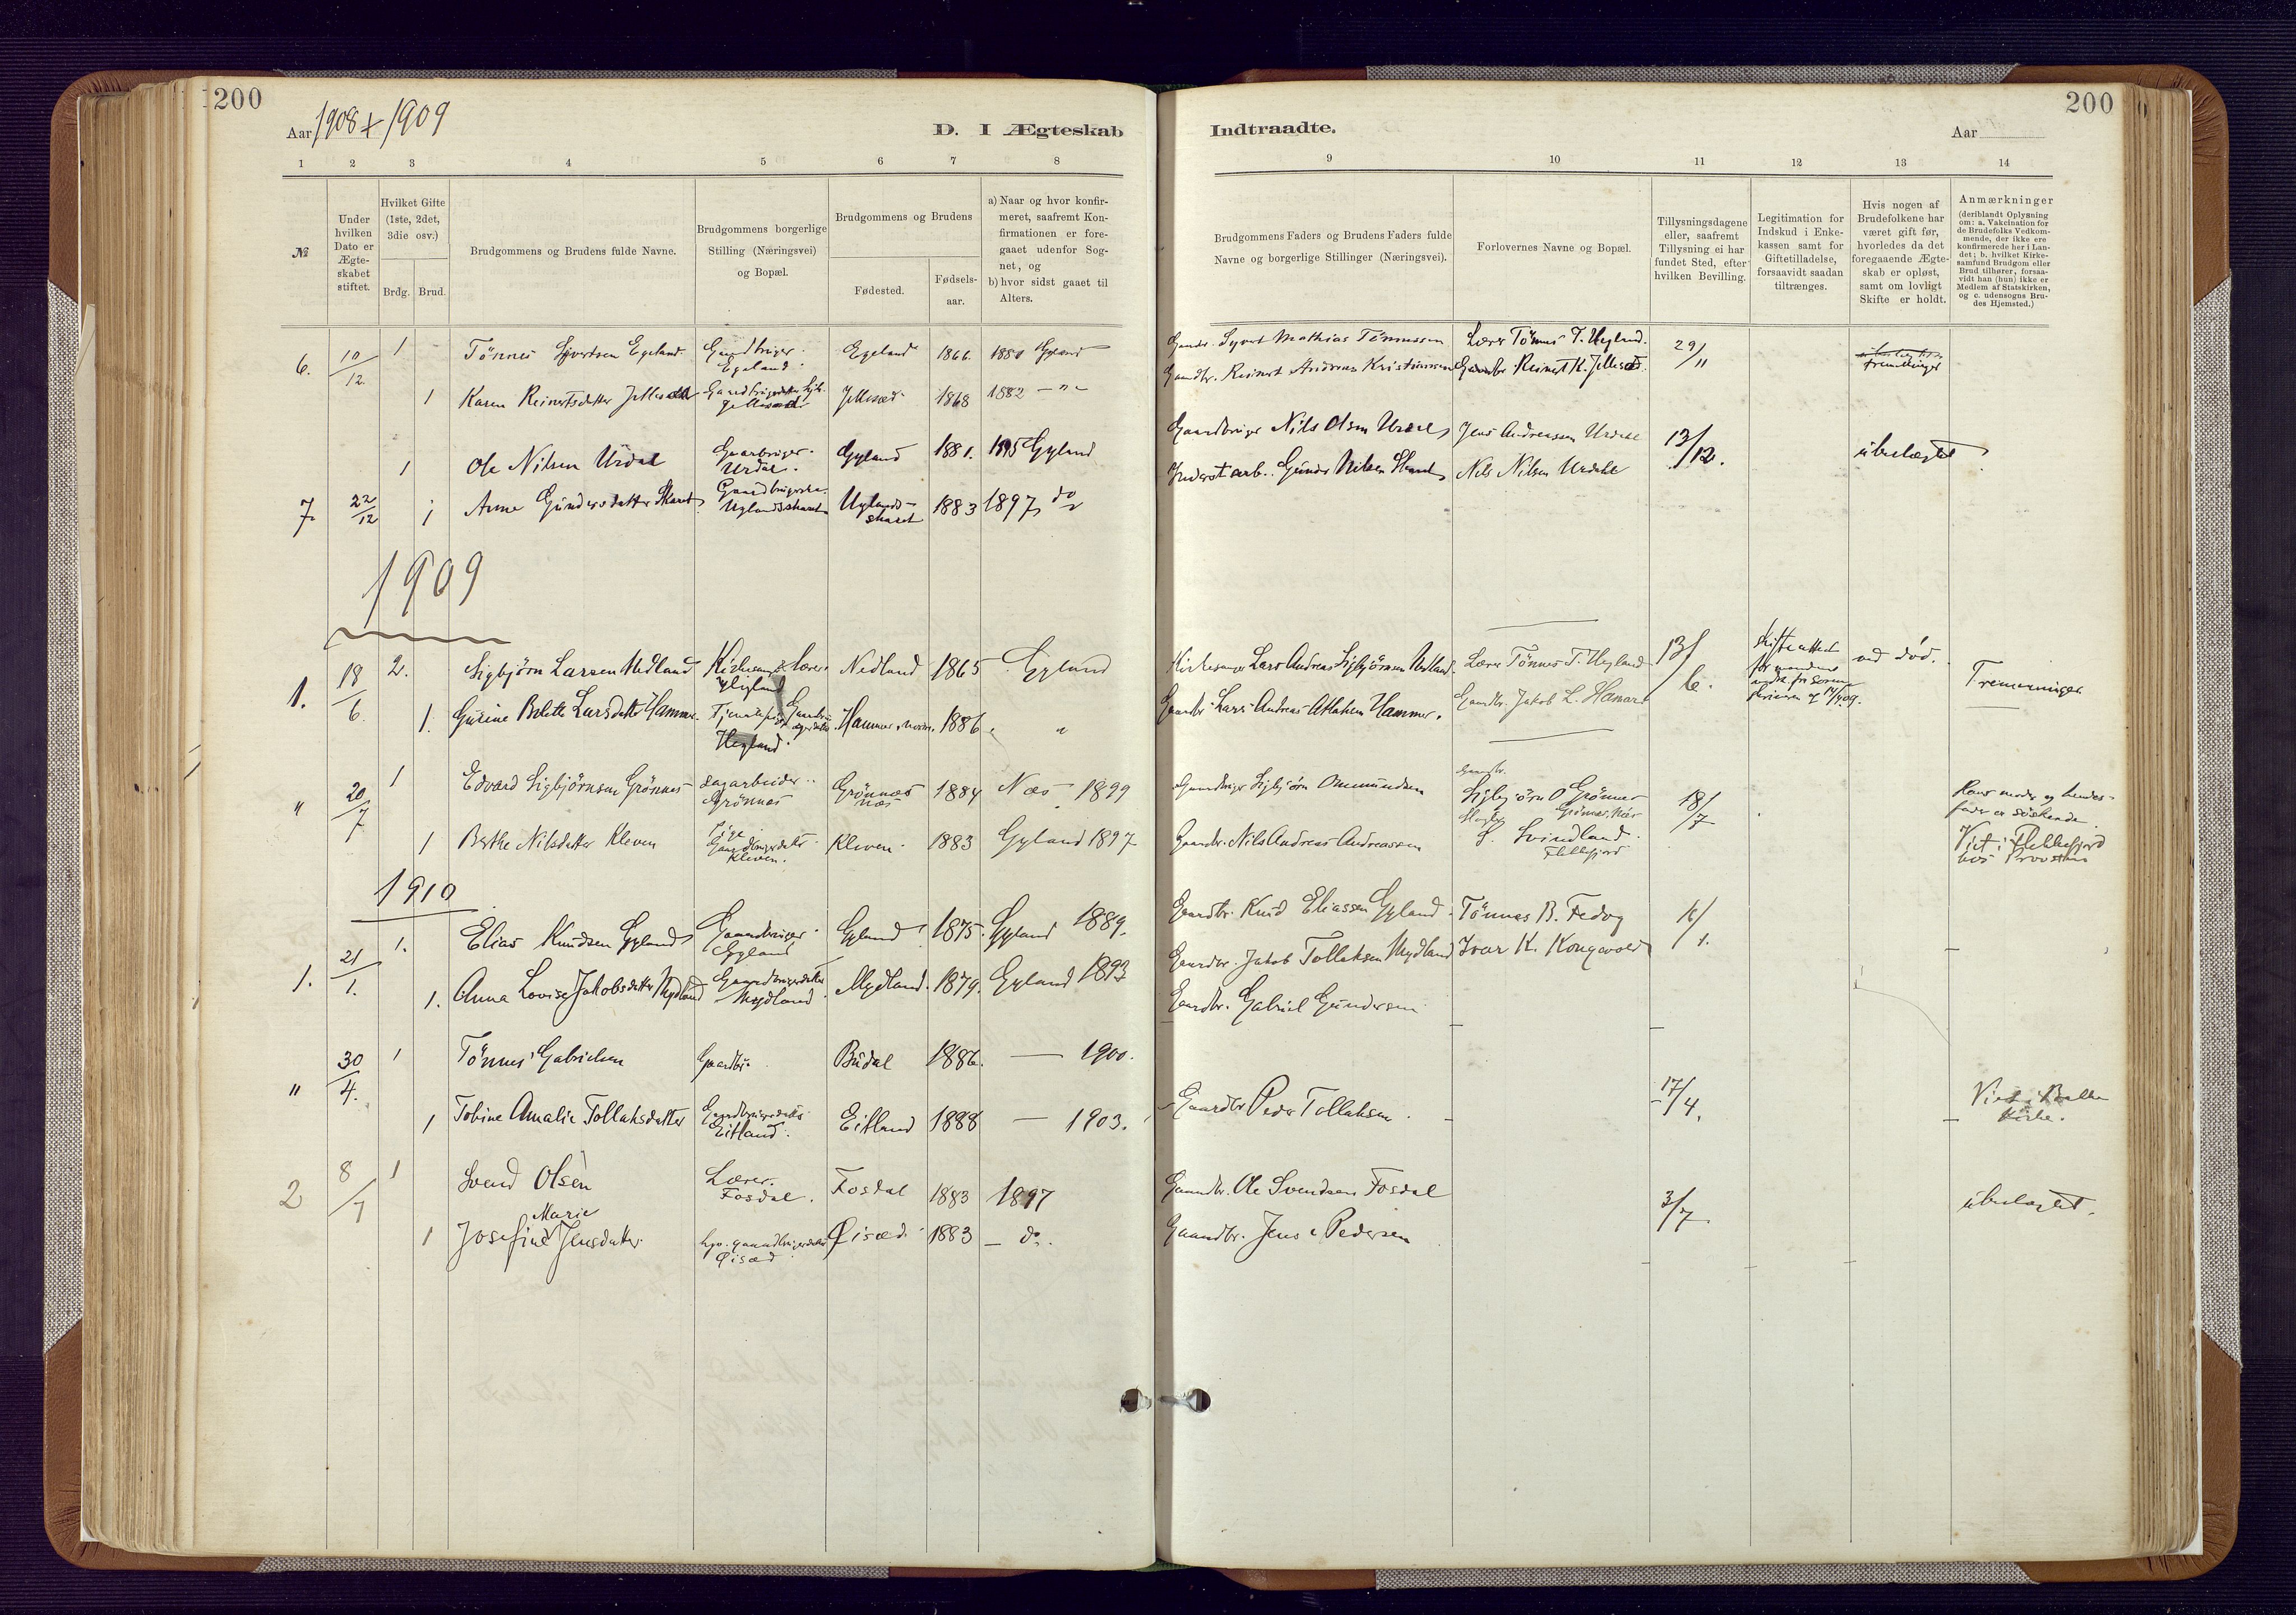 200
Aar 1908 + 1909
D. I Ægteskab
Indtraadte.
Aar
200
1 2 3 4 5 6 7 8
9 10 11 12 13 14
№
Under hvilken Dato er Ægte-skabet stiftet.
Hvilket Gifte (1ste, 2det, 3die osv.)
Brdg. Brud.
Brudgommens og Brudens fulde Navne.
Brudgommens borgerlige Stilling (Næringsvei) og Bopæl.
Brudgommens og Brudens
Fødested.
Fødsels-aar.
a) Naar og hvor konfir-meret, saafremt Kon-firmationen er fore-gaaet udenfor Sog-net, og
b) hvor sidst gaaet til Alters.
Brudgommens Faders og Brudens Faders fulde Navne og borgerlige Stillinger (Næringsvei).
Forlovernes Navne og Bopæl.
Tillysningsdagene eller, saafremt Tillysning ei har fundet Sted, efter hvilken Bevilling.
Legitimation for Indskud i Enke-kassen samt for Giftetilladelse, forsaavidt saadan tiltrænges.
Hvis nogen af Brudefolkene har været gift før, hvorledes da det foregaaende Ægte-skab er opløst, samt om lovligt Skifte er holdt.
Anmærkninger
(deriblandt Oplysning om: a. Vakcination for de Brudefolks Vedkom-mende, der ikke ere konfirmerede her i Lan-det; b. hvilket Kirke-samfund Brudgom eller Brud tilhører, forsaa-vidt han (hun) ikke er Medlem af Statskirken, og c. udensogns Bru-des Hjemsted.)
6. 10/12 1 Tönnes Syvertsen Egeland. Gaardbruger. Egeland. Egeland 1866 1880 Gyland Gaardbr. Syvert Mathias Tönnessen Lærer Tönnes T. Hegland. 29/11
1 Karen Reinertsdatter Jellesæd Jellesæd Jellesæd 1868 1882 -"- Gaardbr. Reinert Andreas Kristiansen Gaardbr. Reinert K. Jellesæd.
1 Ole Nilsen Urdal Gaarbruger. Urdal. Gyland 1881. 1895 Gyland Gaardbruger Nils Olsen Urdal Jens Andreassen Urdal 13/12. ubeslægtet
7. 22/12 1 Anne Gundersdatter Skaret Uglandsskaret Uglands-skaret 1883 1897 do Inderst arb. Gunder Nilsen Skaret Nils Nilsen Urdal
1909
1. 18/6 2. Sigbjörn Larsen Nedland Kirkesang. & Lærer Hegland Nedland 1865 Gyland Kirkesanger Lars Andreas Sigbjörnsen Nedland. Lærer Tönnes T. Hegland 13/6. Skifteattest ved död. Tremenninger
1. Gurine Bolette Larsdatter Hammer. Hegland. Hammer 1886 " Gaardbr. Lars Andreas Atlaksen Hammer. Gaardbr. Jakob L. Hamar
" 20/7 1 Edvard Sigbjörnsen Grönnes Sagarbeider. Grönnes Grönnæs Næs 1884 Næs 1899 Gaardbruger Sigbjörn Ommundsen Gaardbr. Sigbjörn O Grönnes 18/7 Hans moder og hendes fader er söskende
1 Berthe Nilsdatter Kleven Pige Gaardbrugerdatter Kleven. Kleven. 1883 Gyland 1897 Gaardbr. Nils Andreas Andreassen S. Svindland. Flekkefjord Viet i Flekkefjord hos Provsten
1910
1. 21/1. 1. Elias Knudsen Gyland Gaardbruger. Gyland Gyland 1875. Gyland 1889. Gaardbr. Knud Eliassen Gyland. Tönnes B. Fedog 16/1.
1. Anna Lovise Jakobsdatter Mydland Gaardbrugerdatter Mydland. Mydland. 1879. Gyland 1893 Gaardbr. Jakob Tollaksen Mydland Ivar K. Kongevold
Gaardbr. Gabriel Gundersen
" 30/4. 1 Tönnes Gabrielsen Gaardbr. Budal 1886. — 1900.
1 Tobine Amalie Tollaksdatter Gaardbrugerdatter Eitland. Eitland 1888 — 1903. Gaardbr Peder Tollaksen. 17/4. Viet i Bakke Kirke.
2 8/7 1 Svend Olsen Lærer. Fosdal. Fosdal 1883 1897 Gaardbr. Ole Svendsen Fosdal 3/7. ubeslægtet.
1 Josefine Marie Jensdatter. gaardbrugerdatter Øisæd Øisæd 1883 — do. Gaardbr. Jens Pedersen